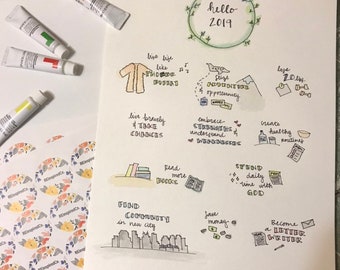 hello
2019
live life
like
seize
ADVENTURE
&
opportunity
lose
20 lbs.
live bravely
& TAKE
CHANCES
embrace
STRENGTHS &
understand
WEAKNESSES
create
healthy
routines
Read
more
BOOKS
SPEND
daily
time with
GOD
FIND
COMMUNITY
in new city
Save
money
Become
a LETTER
WRITER